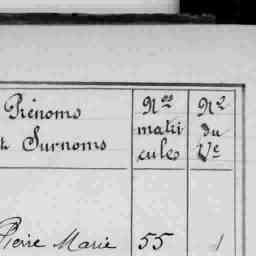 Prénoms
& Surnoms
Nos
matri
cules
No
du
Ve
Pierre Marie 55 1